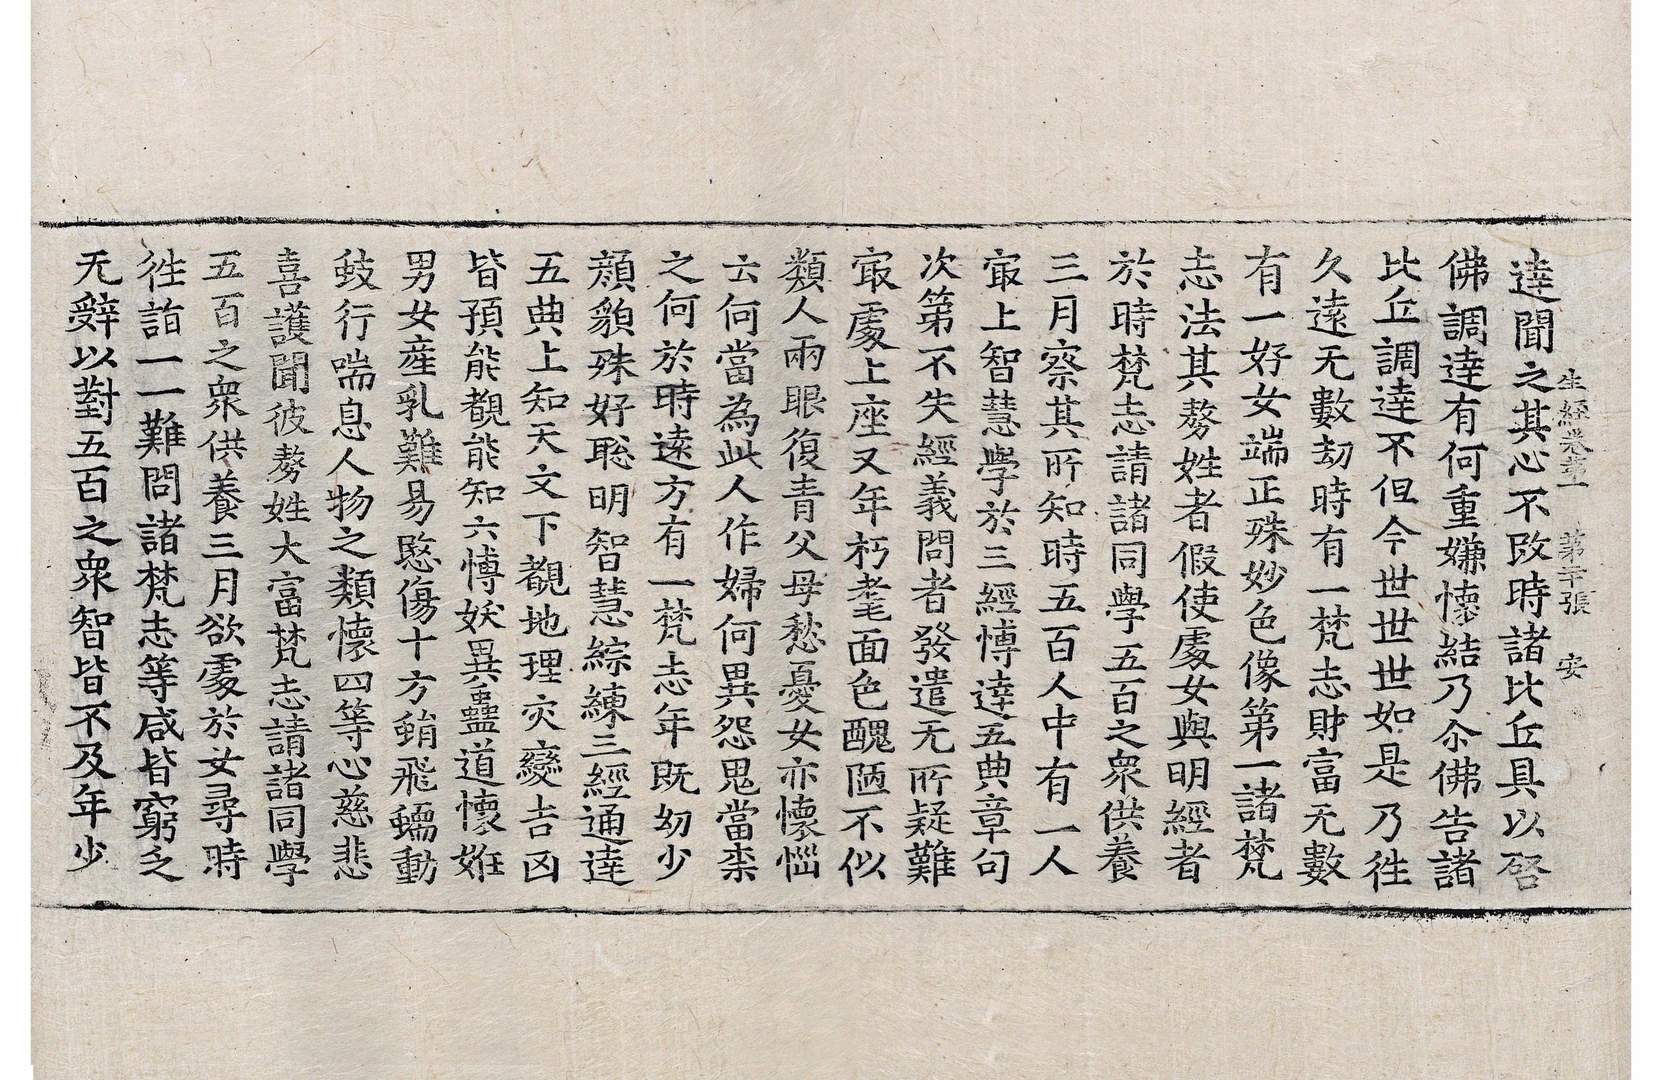 達聞之其心不改時諸比丘具以啓
生經卷第一　第二十張　安
佛調達有何重嫌懷結乃尒佛告諸
比丘調達不但今世世世如是乃徃
久遠无數劫時有一梵志財富无數
有一好女端正殊妙色像第一諸梵
志法其豪姓者假使處女與明經者
於時梵志請諸同學五百之衆供養
三月察其所知時五百人中有一人
㝡上智慧學於三經博達五典章句
次第不失經義問者發遣无所疑難
㝡處上座又年朽耄面色醜陋不似
類人兩眼復青父母愁憂女亦懷惱
云何當為此人作婦何異怨鬼當柰
之何於時遠方有一梵志年既幼少
顔貌殊好聡明智慧綜練三經通達
五典上知天文下覩地理灾變吉凶
皆預能覩能知六博妖異蠱道懷妊
男女産乳難易愍傷十方蛸飛蠕動
蚑行喘息人物之類懷四等心慈悲
喜護聞彼豪姓大富梵志請諸同學
五百之衆供養三月欲處於女尋時
徃詣一一難問諸梵志等咸皆窮乏
无辤以對五百之衆智皆不及年少